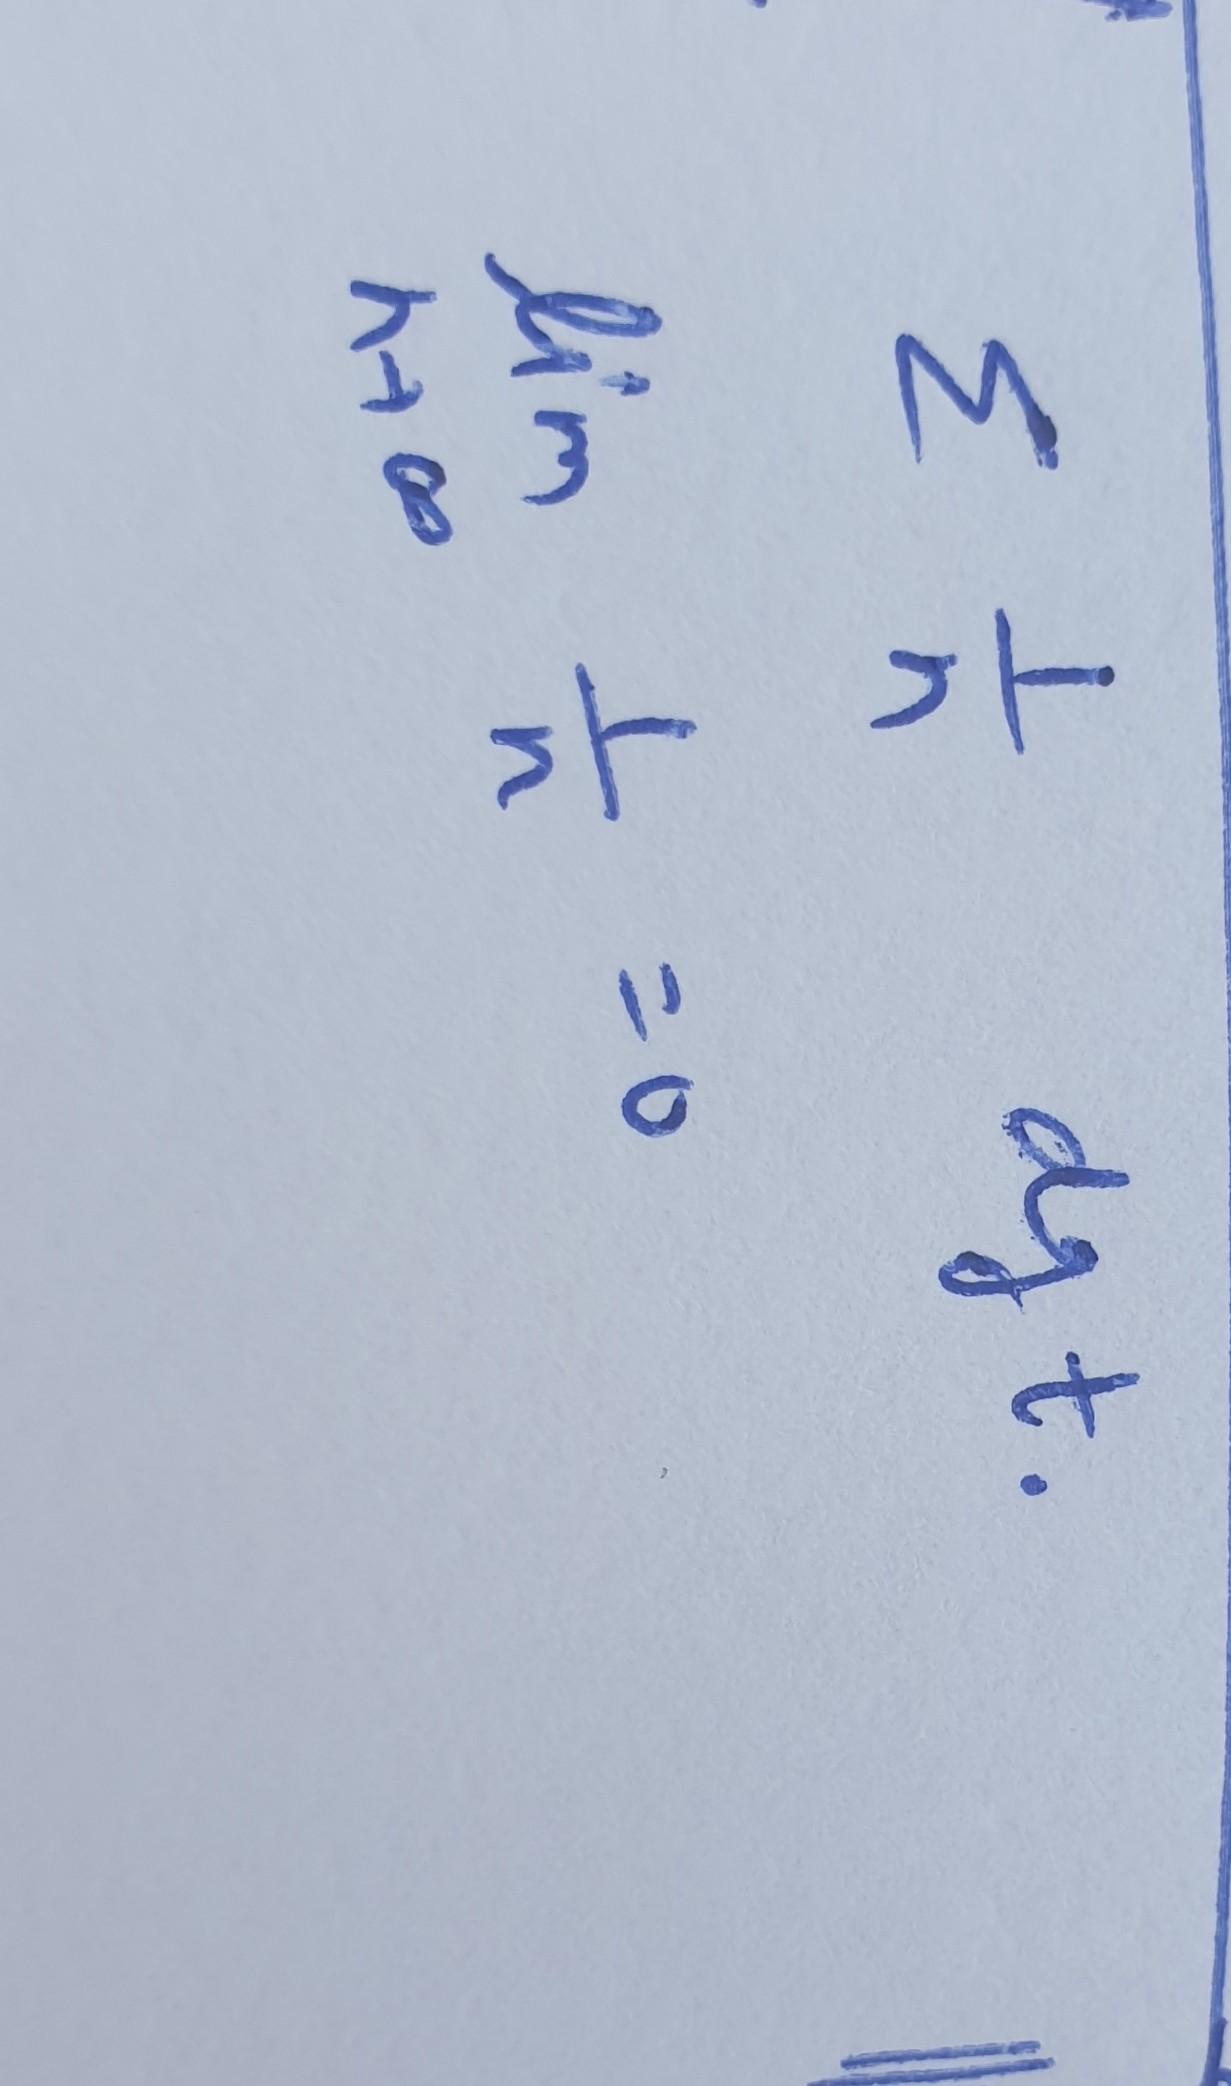 Σ 1/n dgt.
lim n→∞ 1/n = 0